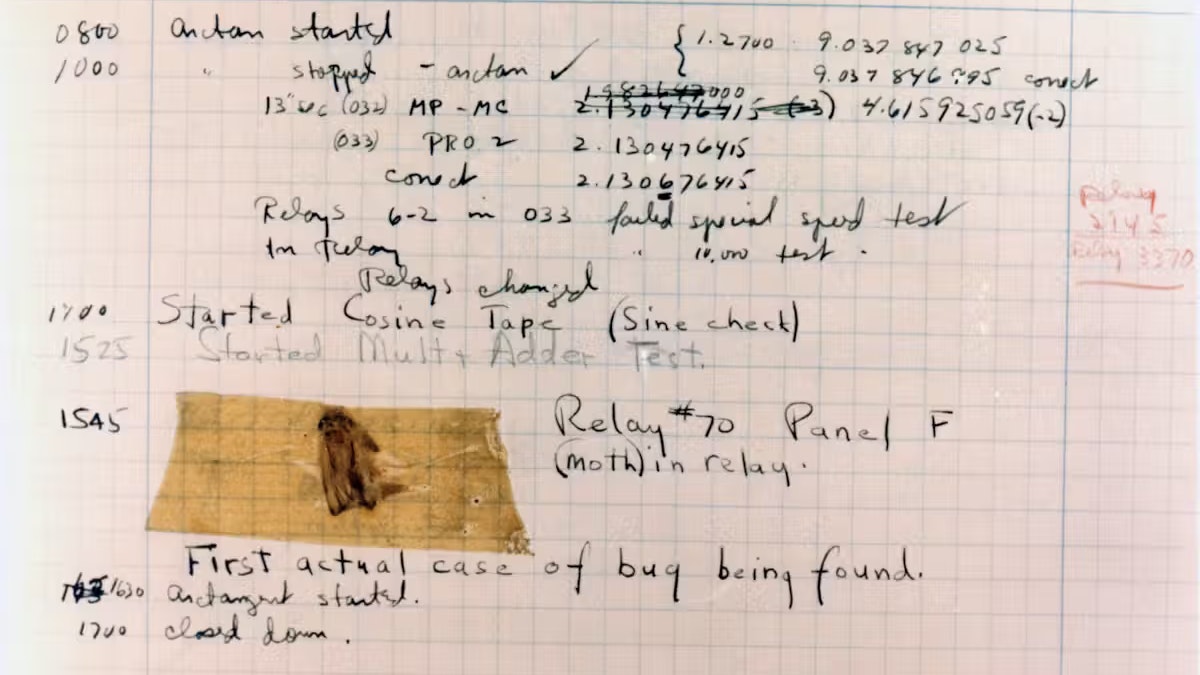 0800 arctan started { 1.2700 9.037 847 025
1000 " stopped - arctan ✓ 9.037 846 995 correct
13"sec (032) MP - MC 2.130476415 (-3) 4.615925059(-2)
(033) PRO 2 2.130476415
correct 2.130676415
Relays 6-2 in 033 failed special speed test
In Relay " 10,000 test .
Relays changed
Relay
2145
Relay 3370
1700 Started Cosine Tape (Sine check)
1525 Started Mult + Adder Test.
1545 Relay #70 Panel F
(moth) in relay.
First actual case of bug being found.
1630 arctangent started.
1700 closed down.